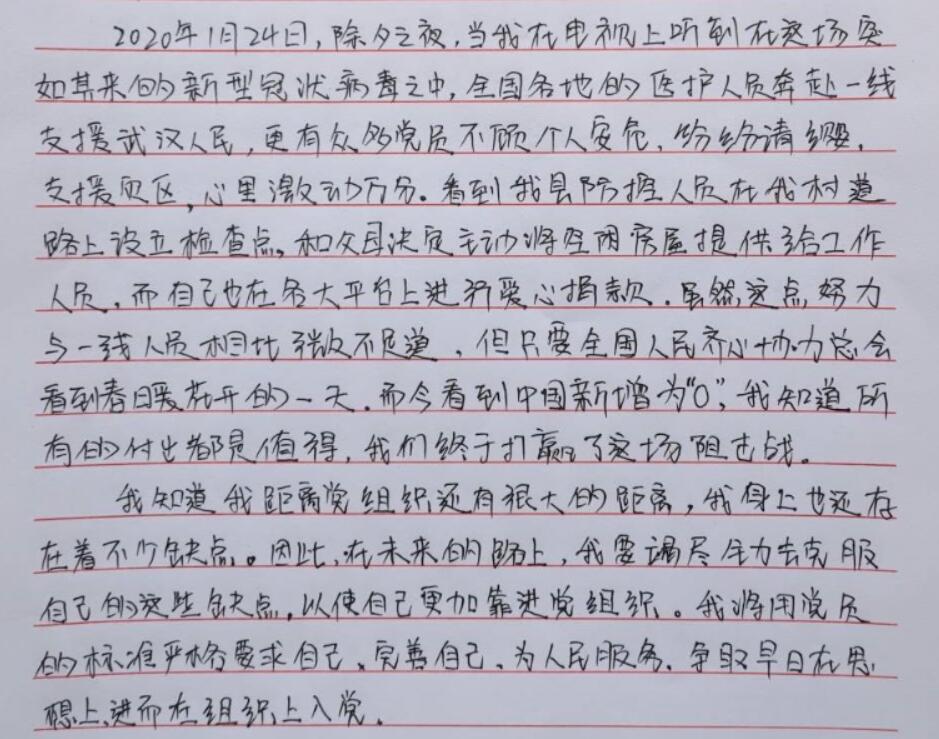 2020年1月24日,除夕之夜,当我在电视上听到在这场突
如其来的新型冠状病毒之中,全国各地的医护人员奔赴一线
支援武汉人民,更有众多党员不顾个人安危,纷纷请缨,
支援疫区,心里激动万分。看到我县防控人员在我村道
路上设立检查点,和父母决定主动将空闲房屋提供给工作
人员,而自己也在各大平台上进行爱心捐款,虽然这点努力
与一线人员相比微不足道,但只要全国人民齐心协力总会
看到春日暖花开的一天,而今看到中国新增为“0”,我知道所
有的付出都是值得,我们终于打赢了这场阻击战。
我知道我距离党组织还有很大的距离,我身上也还存
在着不少缺点。因此,在未来的路上,我要竭尽全力去克服
自己的这些缺点,以使自己更加靠进党组织。我将用党员
的标准严格要求自己,完善自己,为人民服务,争取早日在思
想上,进而在组织上入党。